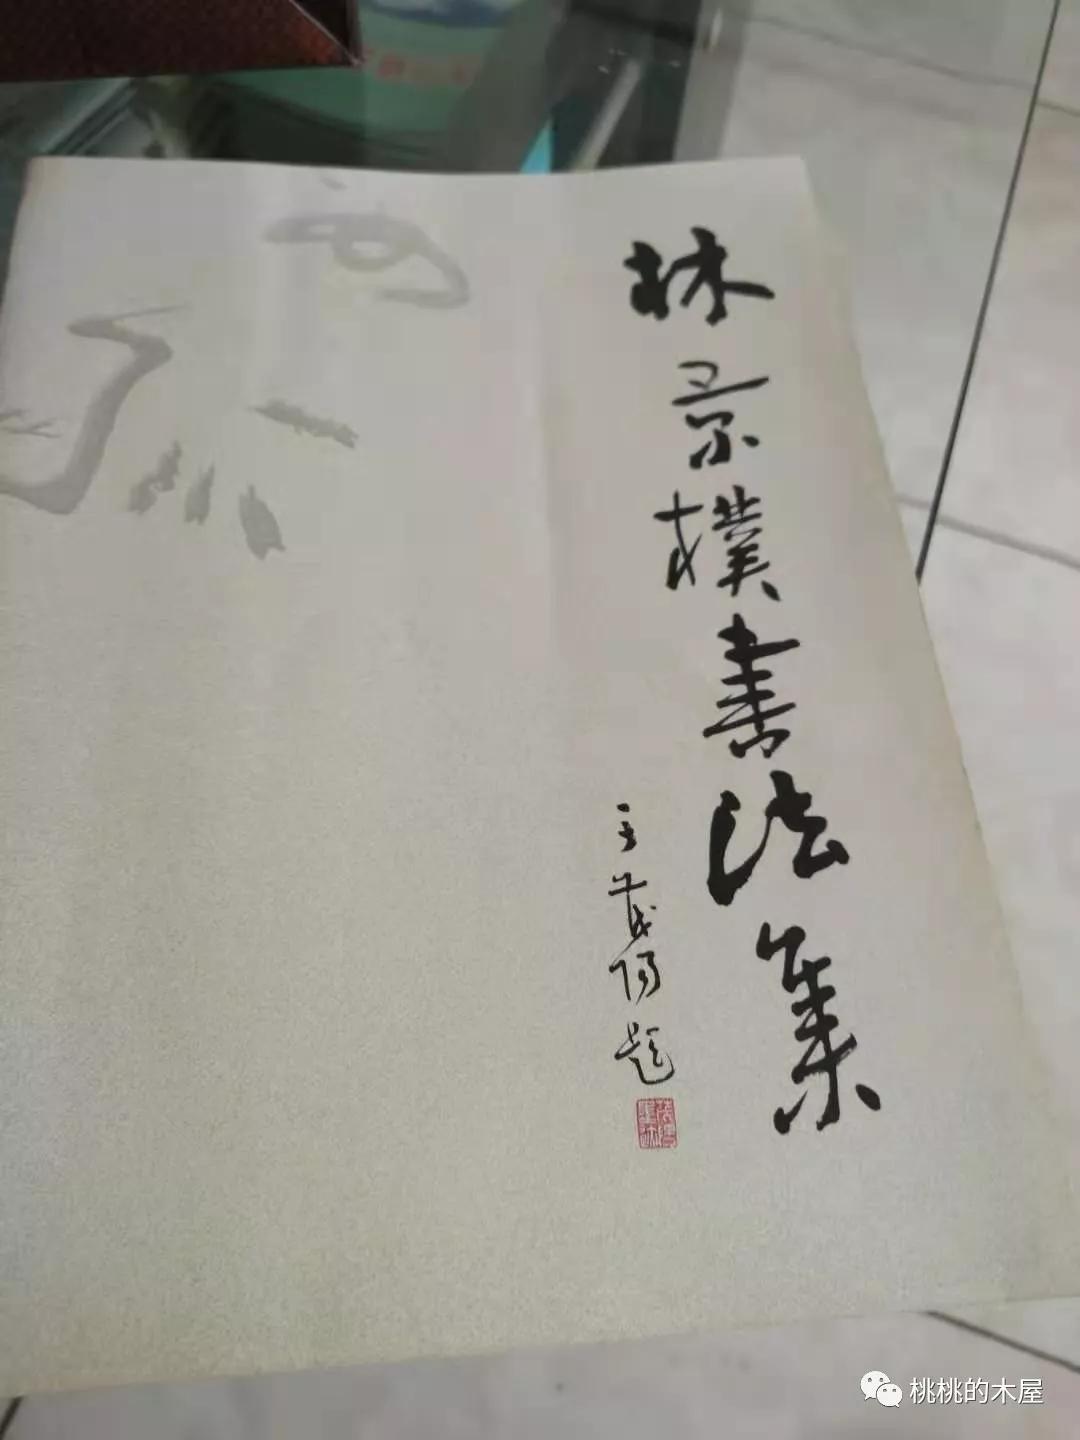 林景樸書法集
王茂陽題
桃桃的木屋